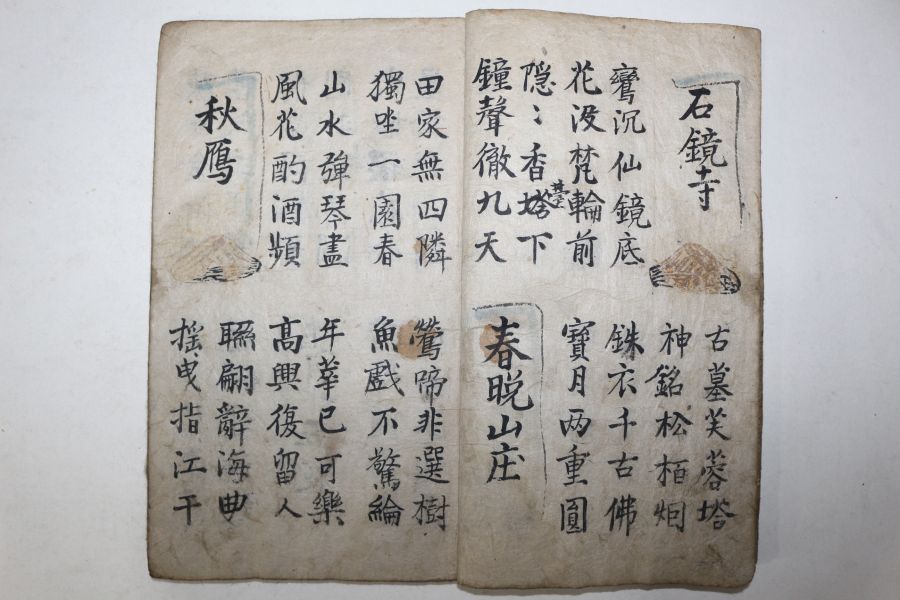 石鏡寺
古墓芙蓉塔
神銘松栢烟
鸞沉仙鏡底
花没梵輪前
銖衣千古佛
寶月两重圓
隠〻香塔下
臺
鐘聲徹九天
春晩山庄
田家無四隣
獨坐一園春
鶯啼非選樹
魚戱不驚綸
山水彈琴盡
風花酌酒頻
年華已可樂
高興復留人
秋鴈
聮翩辭海曲
摇曳指江干